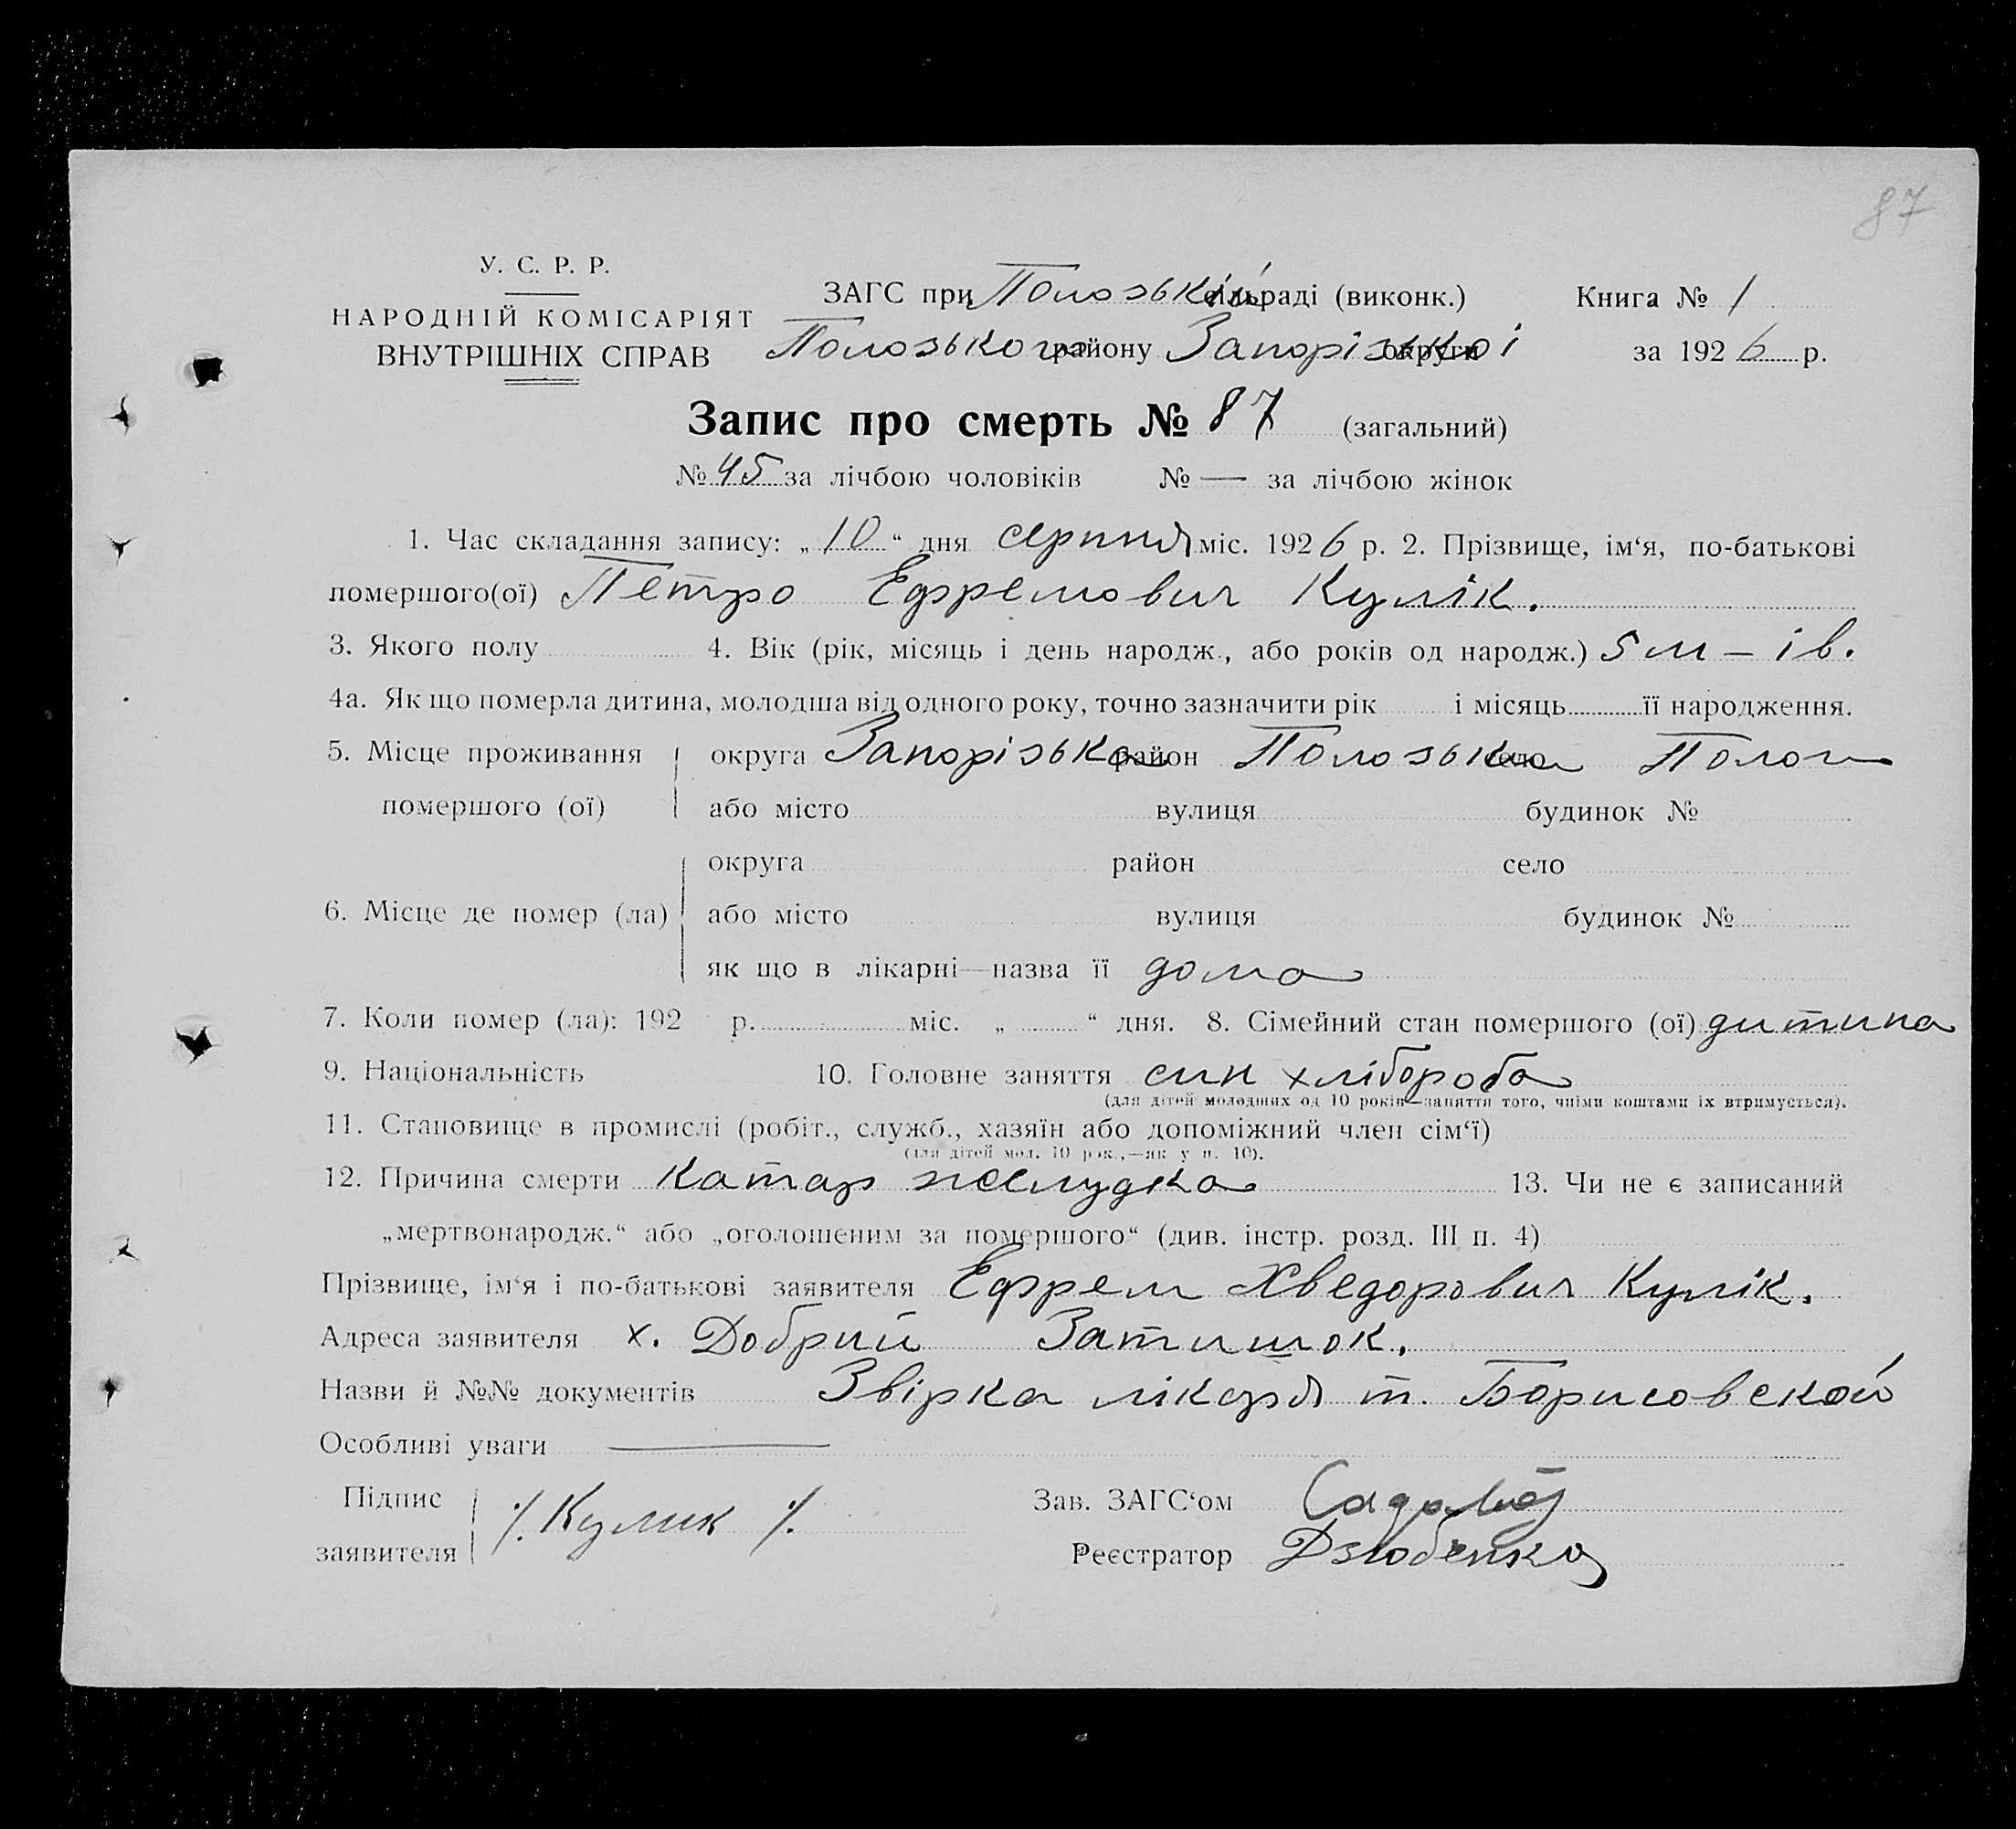 87
У. С. Р. Р.
НАРОДНІЙ КОМІСАРІЯТ
ВНУТРІШНІХ СПРАВ
ЗАГС при Полозькій сільраді (виконк.)
Полозького району Запорізької округи
Книга № 1
за 1926 р.
Запис про смерть № 87 (загальний)
№ 45 за лічбою чоловіків № — за лічбою жінок
1. Час складання запису: „10“ дня серпня міс. 1926 р. 2. Прізвище, ім‘я, по-батькові
помершого(ої) Петро Ефремович Кулік.
3. Якого полу 4. Вік (рік, місяць і день народж., або років од народж.) 5 м – ів.
4а. Як що померла дитина, молодша від одного року, точно зазначити рік і місяць її народження.
5. Місце проживання округа Запорізька район Полозьк село Пологи
помершого (ої) або місто вулиця будинок №
округа район село
6. Місце де помер (ла) або місто вулиця будинок №
як що в лікарні—назва її дома
7. Коли помер (ла): 192 р. міс. „ “ дня. 8. Сімейний стан помершого (ої) дитина
9. Національність 10. Головне заняття син хлібороба
(для дітей молодших од 10 років—заняття того, чиїми коштами їх втримується).
11. Становище в промислі (робіт., служб., хазяїн або допоміжний член сім‘ї)
(для дітей мол. 10 рок.,—як у п. 10).
12. Причина смерти Катар желудка 13. Чи не є записаний
„мертвонародж.“ або „оголошеним за помершого“ (див. інстр. розд. III п. 4)
Прізвище, ім‘я і по-батькові заявителя Ефрем Хведорович Кулік.
Адреса заявителя х. Добрий Затишок.
Назви й №№ документів Звірка лікаря т. Борисовской
Особливі уваги —
Підпис
заявителя /. Кулик /.
Зав. ЗАГС‘ом
Реєстратор Дзюбенко